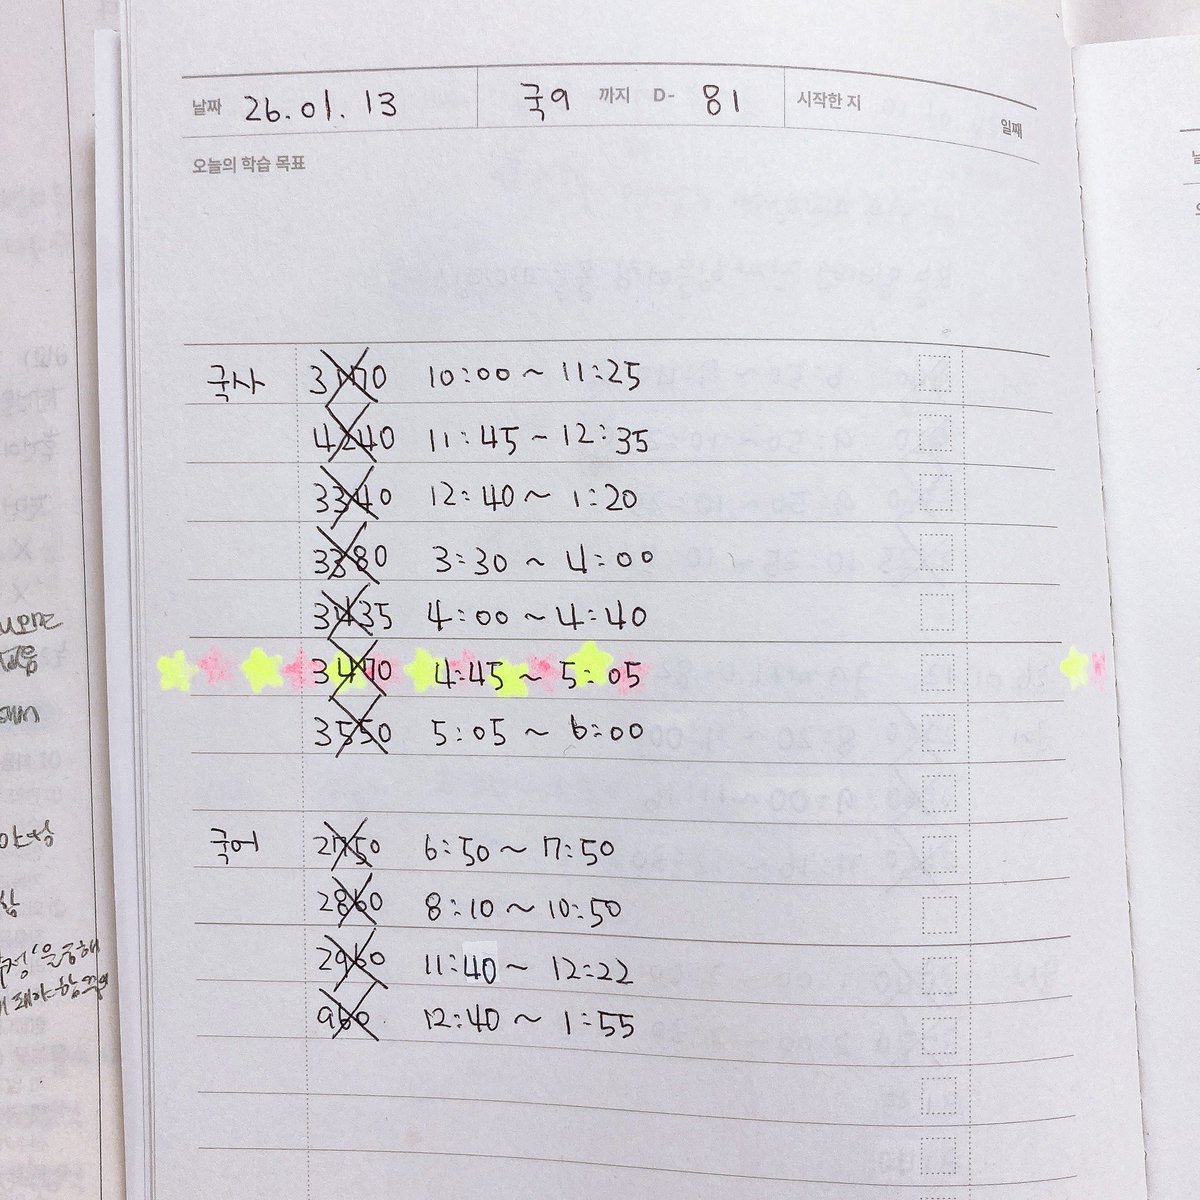 날짜 26.01.13 국9 까지 D- 81 시작한 지 일째
오늘의 학습 목표
국사 3170 10:00 ~ 11:25
4240 11:45 ~ 12:35
3340 12:40 ~ 1:20
3380 3:30 ~ 4:00
3435 4:00 ~ 4:40
3470 4:45 ~ 5:05
3550 5:05 ~ 6:00
국어 2750 6:50 ~ 7:50
2860 8:10 ~ 10:50
2960 11:40 ~ 12:22
960 12:40 ~ 1:55